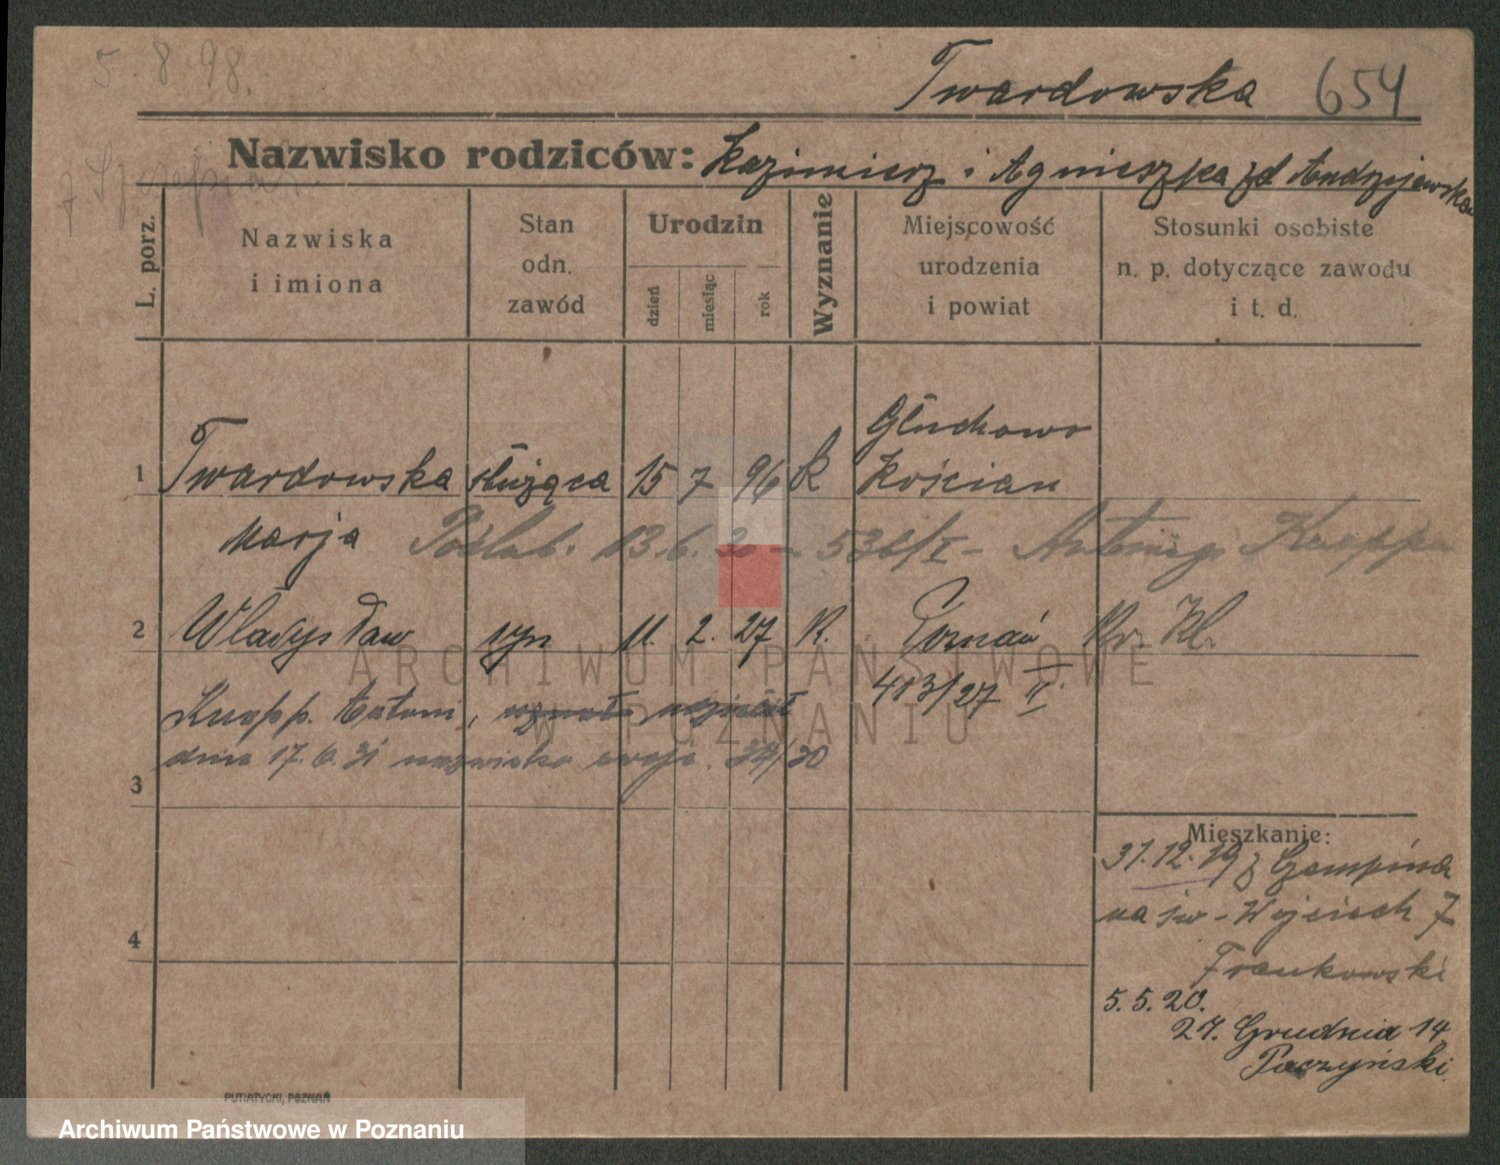 5. 8. 98.
Twardowska 654
Nazwisko rodziców: Kazimierz i Agnieszka zd Andrzejewska
L. porz.
Nazwiska
i imiona
Stan
odn.
zawód
Urodzin
dzień
miesiąc
rok
Wyznanie
Miejscowość
urodzenia
i powiat
Stosunki osobiste
n. p. dotyczące zawodu
i t. d.
Głuchowo
1 Twardowska służąca 15 7 96 k Kościan
Marja Poślub. 13.6.20 - 536/I - Antoniego Knappa
2 Władysław syn 11. 2. 27 K. Poznań Kr. Kl.
413/27 II.
Knapp. Antoni,
dnia 17.6.31 nazwisko swoje. 34/30
3
Mieszkanie:
31.12.19 z Czempinia
na św-Wojciech 7
Frankowski
4
5.5.20.
27. Grudnia 14
Paczyński
PUTIATYCKI, POZNAŃ
ARCHIWUM PAŃSTWOWE
W POZNANIU
Archiwum Państwowe w Poznaniu